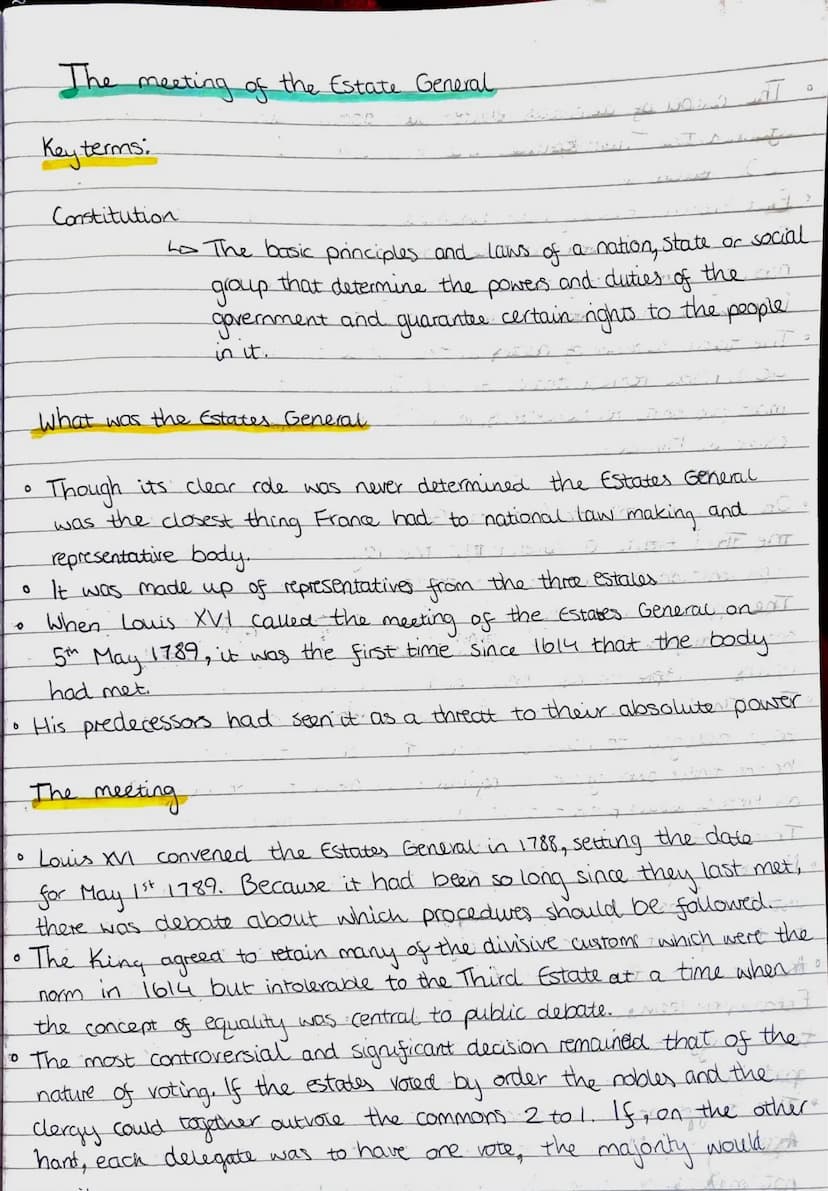 The meeting of the Estate General
Key terms:
Constitution
↳ The basic principles and laws of a nation, state or social
group that determine the powers and duties of the
government and guarantee certain rights to the people
in it.
What was the Estates General
• Though its clear role was never determined the Estates General
was the closest thing France had to national law making and
representative body.
• It was made up of representatives from the three estates
• When Louis XVI called the meeting of the Estates General on
5th May 1789, it was the first time since 1614 that the body
had met.
• His predecessors had seen it as a threat to their absolute power
The meeting
• Louis XVI convened the Estates General in 1788, setting the date
for May 1st 1789. Because it had been so long since they last met,
there was debate about which procedures should be followed.
• The King agreed to retain many of the divisive customs which were the
norm in 1614 but intolerable to the Third Estate at a time when
the concept of equality was central to public debate.
• The most controversial and significant decision remained that of the
nature of voting. If the estates voted by order the nobles and the
clergy could together outvote the commons 2 to 1. If, on the other
hant, each delegate was to have one vote, the majority would